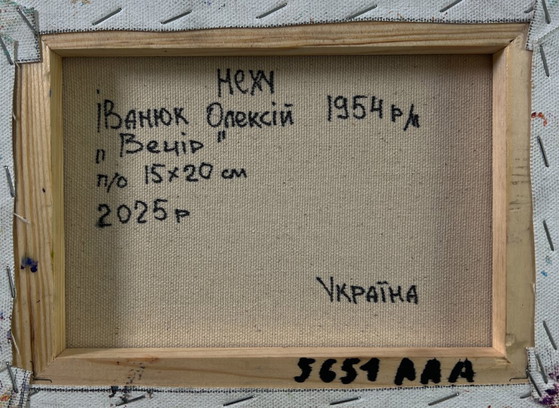 НСХУ
Іванюк Олексій 1954 р/н
„Вечір"
п/о 15×20 см
2025 р
Україна
5651 ААА